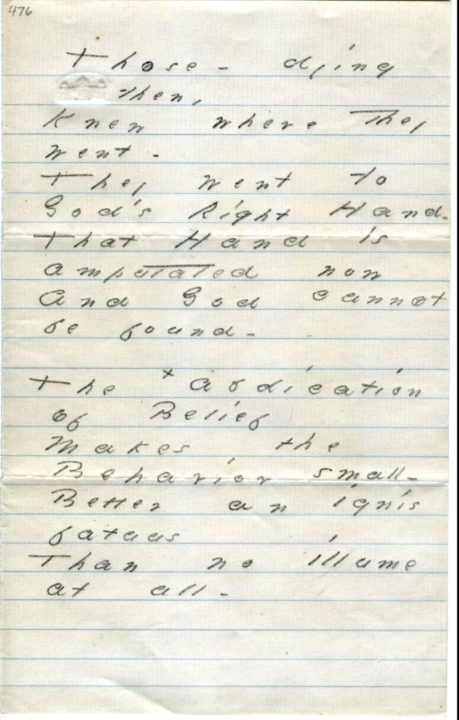 476
Those - dying
then,
Knew where they
went -
They went to
God's Right Hand -
That Hand is
amputated now
And God cannot
be found -
The + Abdication
of Belief
Makes the
Behavior small -
Better an ignis
fatuus
Than no illume
at all -